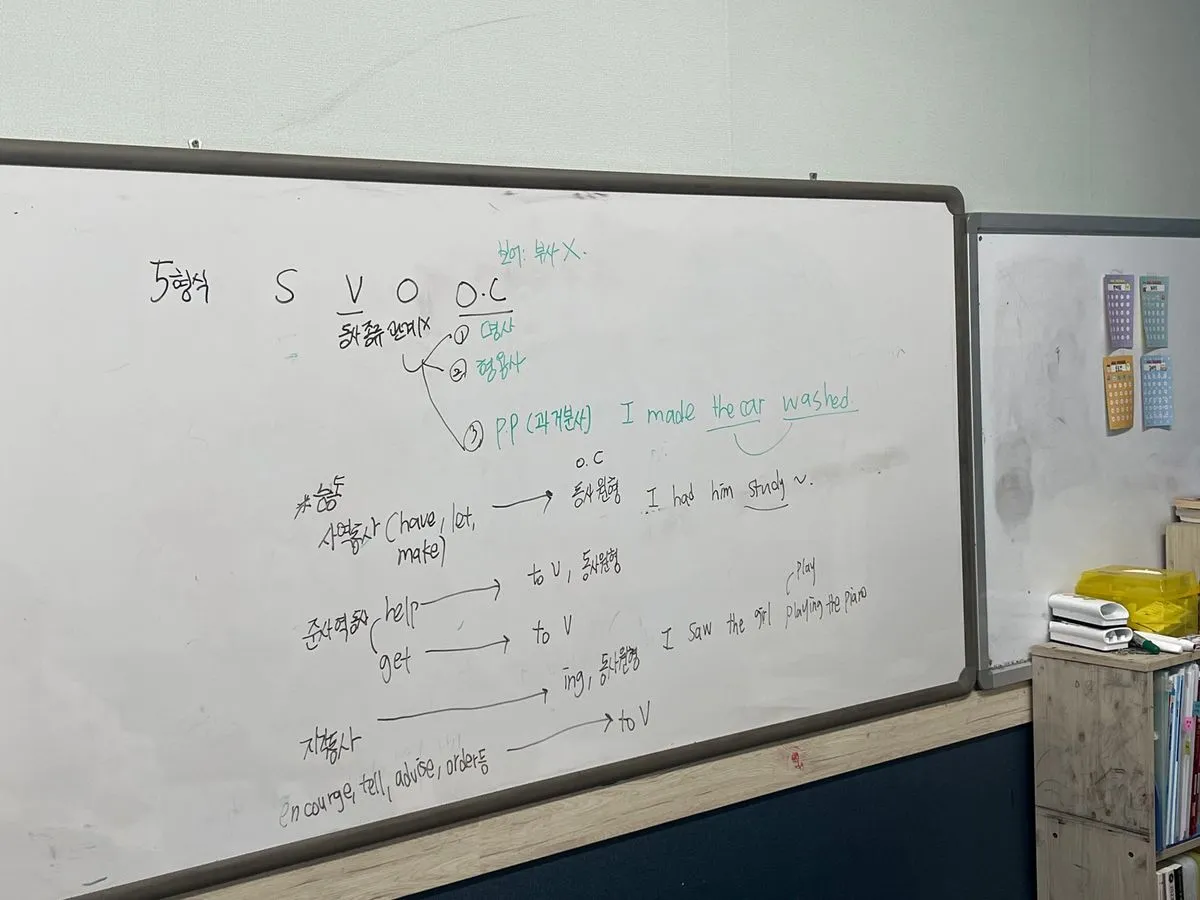 보어: 부사 X.
5형식 S V O O.C
동사 종류 관계 X
① 명사
② 형용사
③ P.P (과거분사) I made the car washed.
O.C
*능동
사역동사 (have, let, make) → 동사원형 I had him study ~.
준사역동사 help → to V, 동사원형
get → to V
play
지각동사 → ing, 동사원형 I saw the girl playing the piano
encourge, tell, advise, order등 → to V